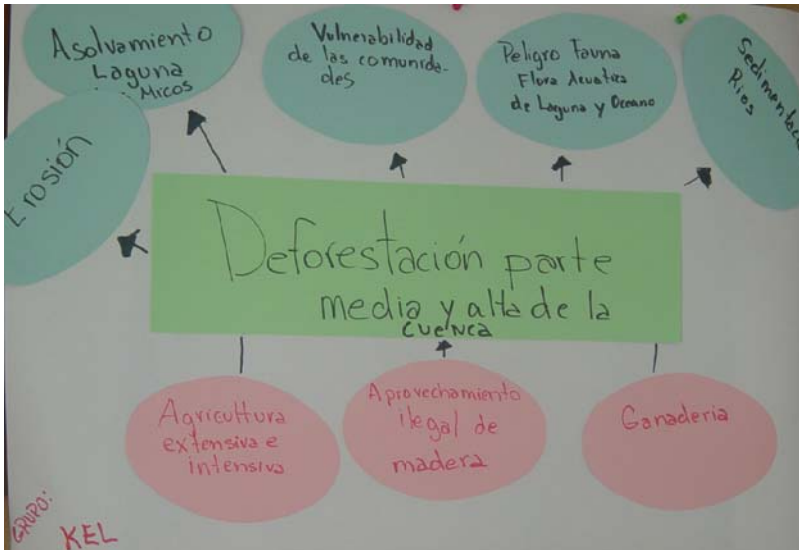 Asolvamiento
Laguna
Micos
Vulnerabilidad
de las comunida-
des
Peligro Fauna
Flora Acuatica
de Laguna y Oceano
Rios
Erosión
Deforestación parte
media y alta de la
CUENCA
Agricultura
extensiva e
intensiva
Aprovechamiento
ilegal de
madera
Ganaderia
GRUPO:
KEL